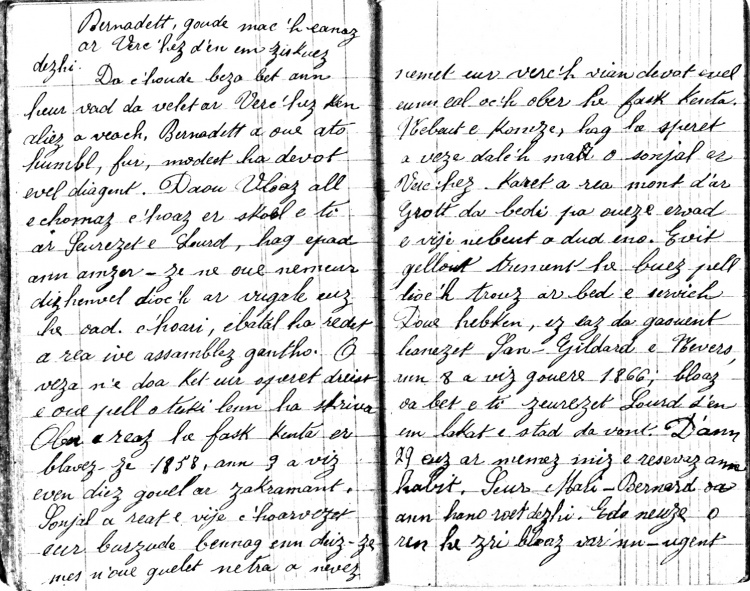 Bernadett, goude mac'h eanaz
ar Verc'hez d'en em ziskuez
dezhi.
Da c'houde beza bet ann
heur vad da velet ar Verc'hez ken
aliez a veach, Bernadett a oue ato
humbl, fur, modest ha devot
evel diagent. Daou Vloaz all
e chomaz c'hoaz er skol e ti
ar Seurezet e Lourd, hag epad
ann amzer-ze ne oue nemeur
dizhenvel dioc'h ar vugale euz
he oad. c'hoari, ebatal ha redet
a rea ive assamblez gantho. O
veza n'e doa ket eur speret dreist
e oue pell o teski lenn ha skriva
Ober a reaz he fask kenta er
blavez-ze 1858, ann 3 a viz
even diez gouel ar zakramant.
Sonjal a reat e vije c'hoarvezet
eur burzude bennag enn deiz-ze
mes n'oue guelet netra a nevez
nemet eur verc'h vian devot evel
eunn eal oc'h ober he fask kenta.
Nebeut e komze, hag he speret
a veze dalc'h mat o sonjal ar
Verc'hez. Karet a rea mont d'ar
Grott da bedi pa oueze ervad
e vije nebeut a dud eno. Evit
gellout tremenn he buez pell
dioc'h trouz ar bed e servich
Doue hebken, ez eaz da gaouent
leanezet San-Gildard e Nevers,
ann 8 a viz gouere 1866, bloaz
oa bet e ti zeurezet Lourd d'en
em lakat e stad da vont. D'ann
29 euz ar memez miz e resevaz ann
habit. Seur Mari-Bernard oa
ann hano roet dezhi. Edo neuze o
ren he zri bloaz var nn-ugent